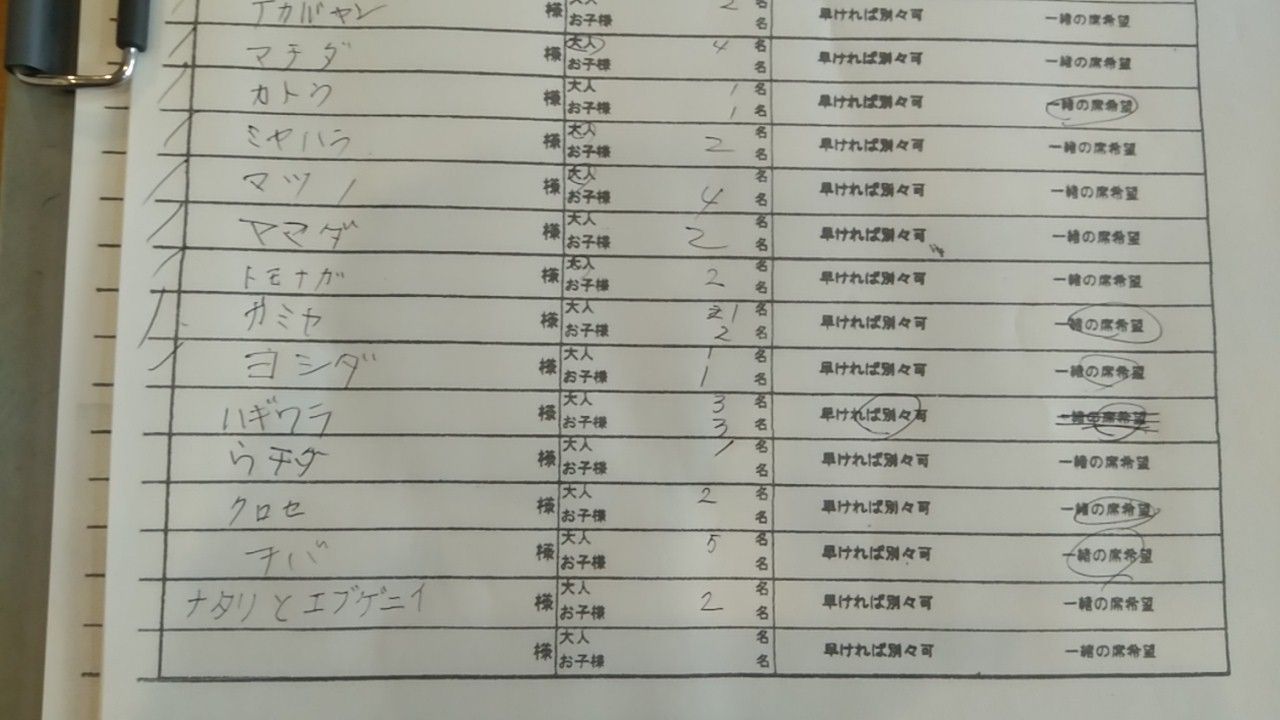 様 大人 2 名 早ければ別々可 一緒の席希望
お子様 名
マチダ 様 大人 4 名 早ければ別々可 一緒の席希望
お子様 名
カトウ 様 大人 1 名 早ければ別々可 一緒の席希望
お子様 1 名
ミヤハラ 様 大人 2 名 早ければ別々可 一緒の席希望
お子様 名
マツノ 様 大人 4 名 早ければ別々可 一緒の席希望
お子様 名
ヤマダ 様 大人 2 名 早ければ別々可 一緒の席希望
お子様 名
トモナガ 様 大人 2 名 早ければ別々可 一緒の席希望
お子様 名
カミヤ 様 大人 1 名 早ければ別々可 一緒の席希望
お子様 2 名
ヨシダ 様 大人 1 名 早ければ別々可 一緒の席希望
お子様 1 名
ハギワラ 様 大人 3 名 早ければ別々可 一緒の席希望
お子様 3 名
ウチダ 様 大人 1 名 早ければ別々可 一緒の席希望
お子様 名
クロセ 様 大人 2 名 早ければ別々可 一緒の席希望
お子様 名
チバ 様 大人 5 名 早ければ別々可 一緒の席希望
お子様 名
ナタリとエブゲニイ 様 大人 2 名 早ければ別々可 一緒の席希望
お子様 名
様 大人 名 早ければ別々可 一緒の席希望
お子様 名